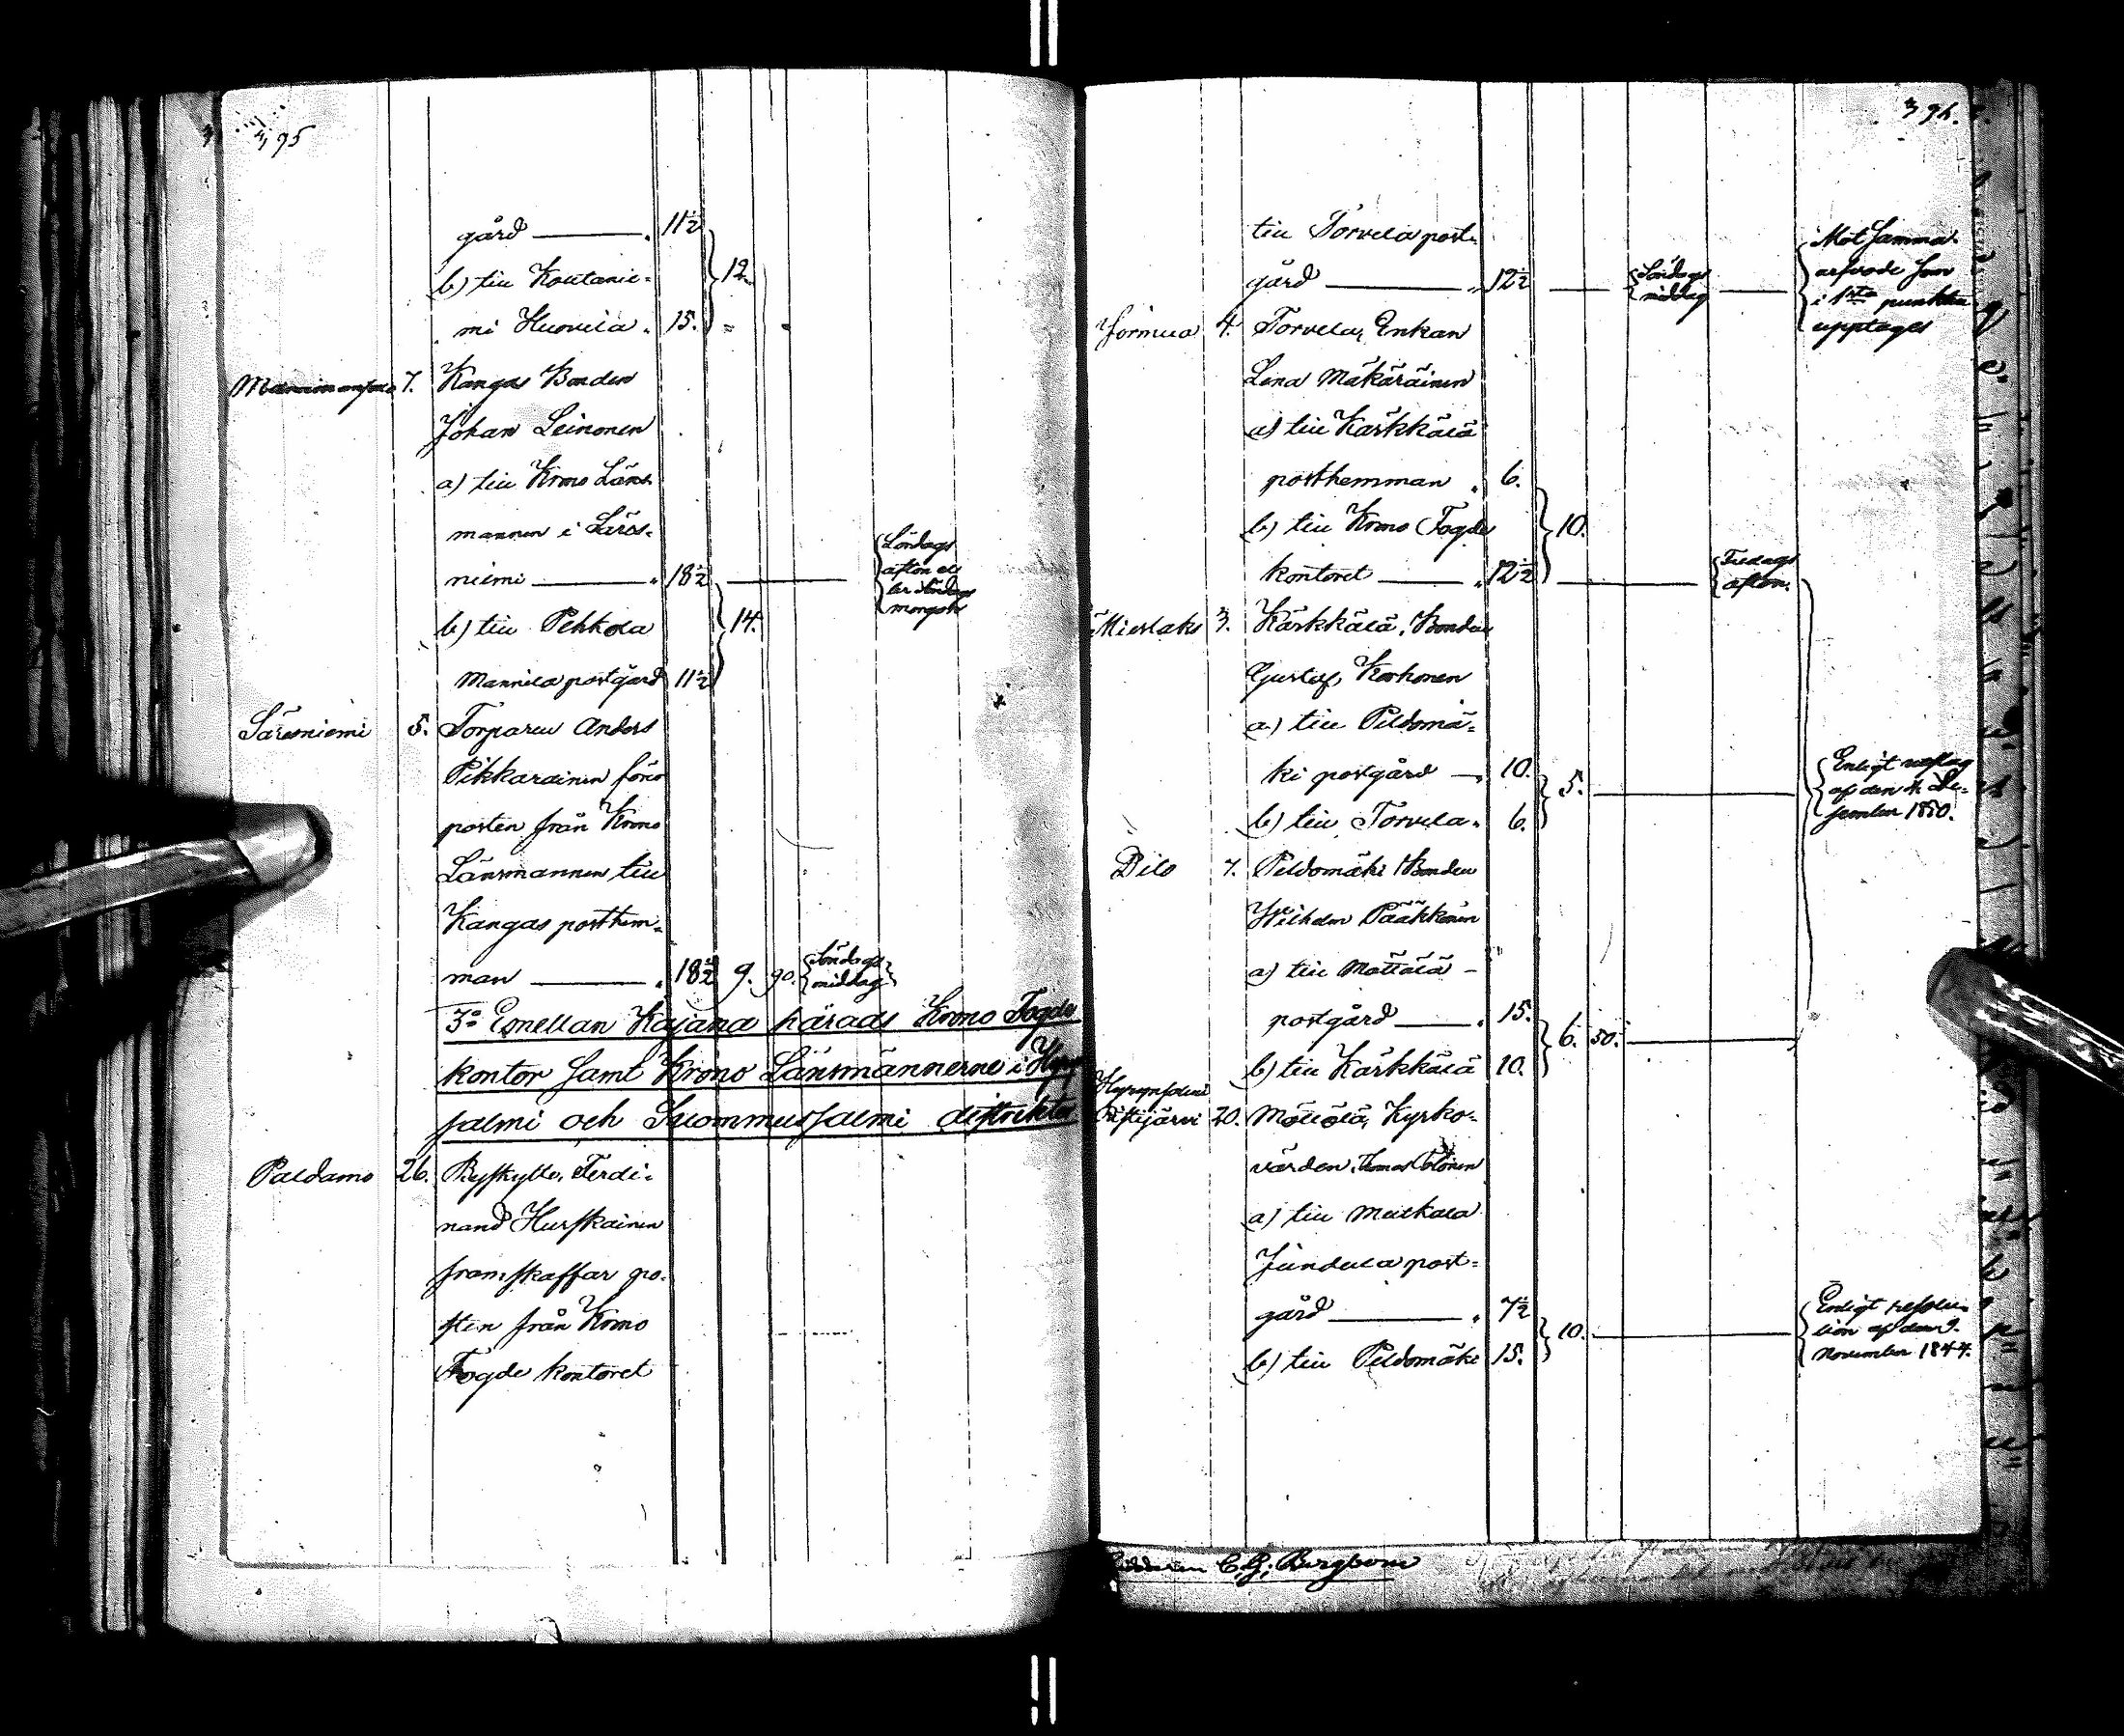 395
gård — " 11½
b) till Koutanie=
mi Huovila " 15. } 12. "
Manamansalo 7. Kangas Bonden
Johan Leinonen
a) till Krono Läns-
mannen i Säres-
niemi — " 18½
Löndags
afton el-
ler Söndags
morgon
b) till Pehkola
} 14.
Mannila postgård 11½
Säresniemi 5. Torparen Anders
Pikkarainen förer
posten från Krono
Länsmannen till
Kangas posthem=
man — " 18½ 9. 90. { Söndags
middag }
3o Emellan Kajana härads Krono Fogde
kontor samt Krono Länsmännerne i Hyryn
salmi och Suommussalmi distrikter
Paldamo 26. Byskytte, Ferdi-
nand Hurskainen
framskaffar po-
sten från Krono
Fogde kontoret
396.
till Torvela post-
gård — " 12½ — { Söndags
middag —
{ Mot samma
arfvode som
i 1sta punkten
upptages
Jormua 4. Torvela, Enkan
Lena Mäkäräinen
a) till Kärkkälä
posthemman " 6.
b) till Krono Fogde } 10.
kontoret — " 12½ — { Tredags
afton.
Mieslaks 3. Kärkkälä, Bonden
Gustaf Korhonen
a) till Peldomä=
ki postgård — " 10. } 5. —
b) till Torvela " 6.
{ Enligt utslag
af den 4 De=
sember 1850.
Dito 7. Peldomäki Bonden
Wilhelm Pääkkönen
a) till Mättälä -
postgård — " 15. } 6. 50. —
b) till Kärkkälä 10.
Hyrynsalmi
Ristijärvi 20. Mättälä, Kyrko-
värden Thomas
a) till Meilkala
Jundula post=
gård — " 7½ } 10. —
b) till Peldomäki 15.
{ Enligt resolu-
tion af den 9.
November 1844.
C. G. Bergbom